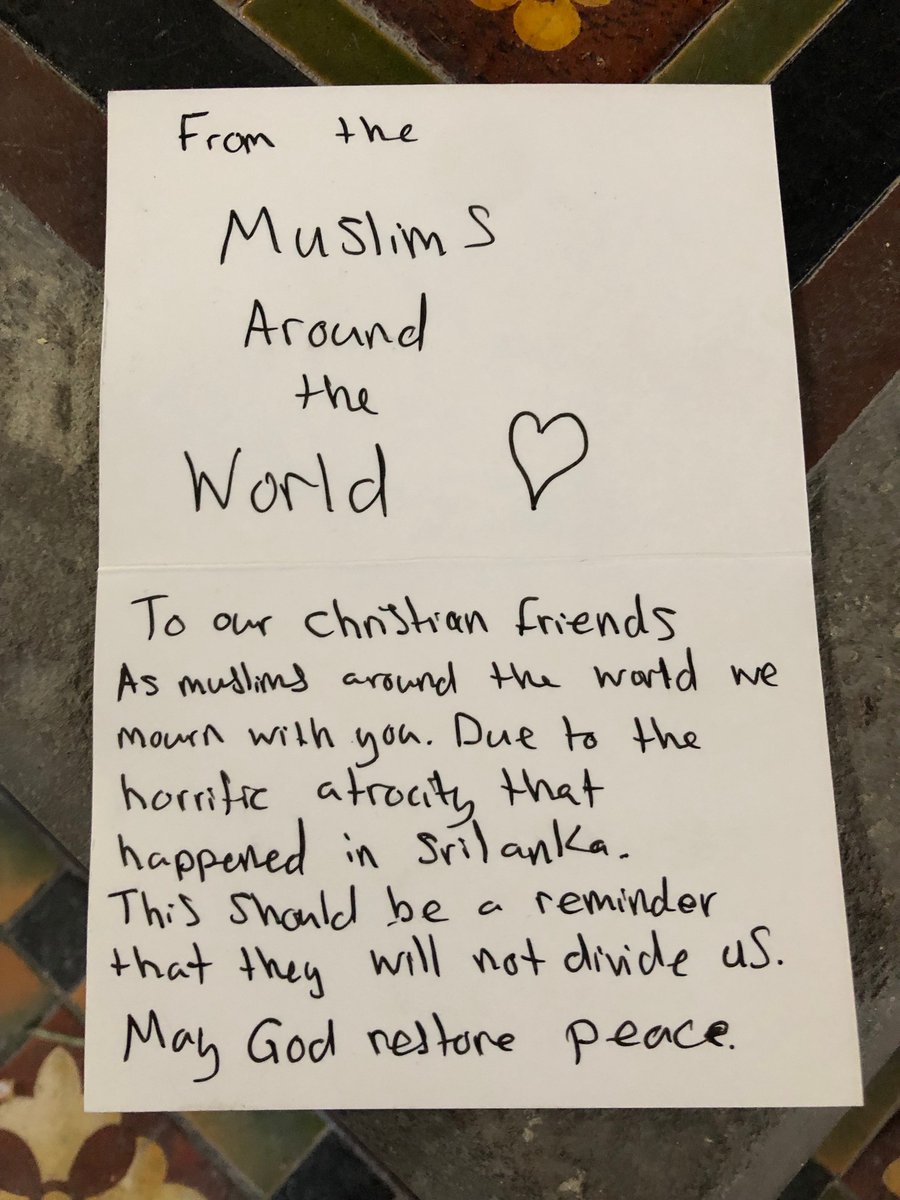 From the
Muslims
Around
the
World
To our christian friends
As muslims around the world we
mourn with you. Due to the
horrific atrocity that
happened in Srilanka.
This should be a reminder
that they will not divide us.
May God restore peace.